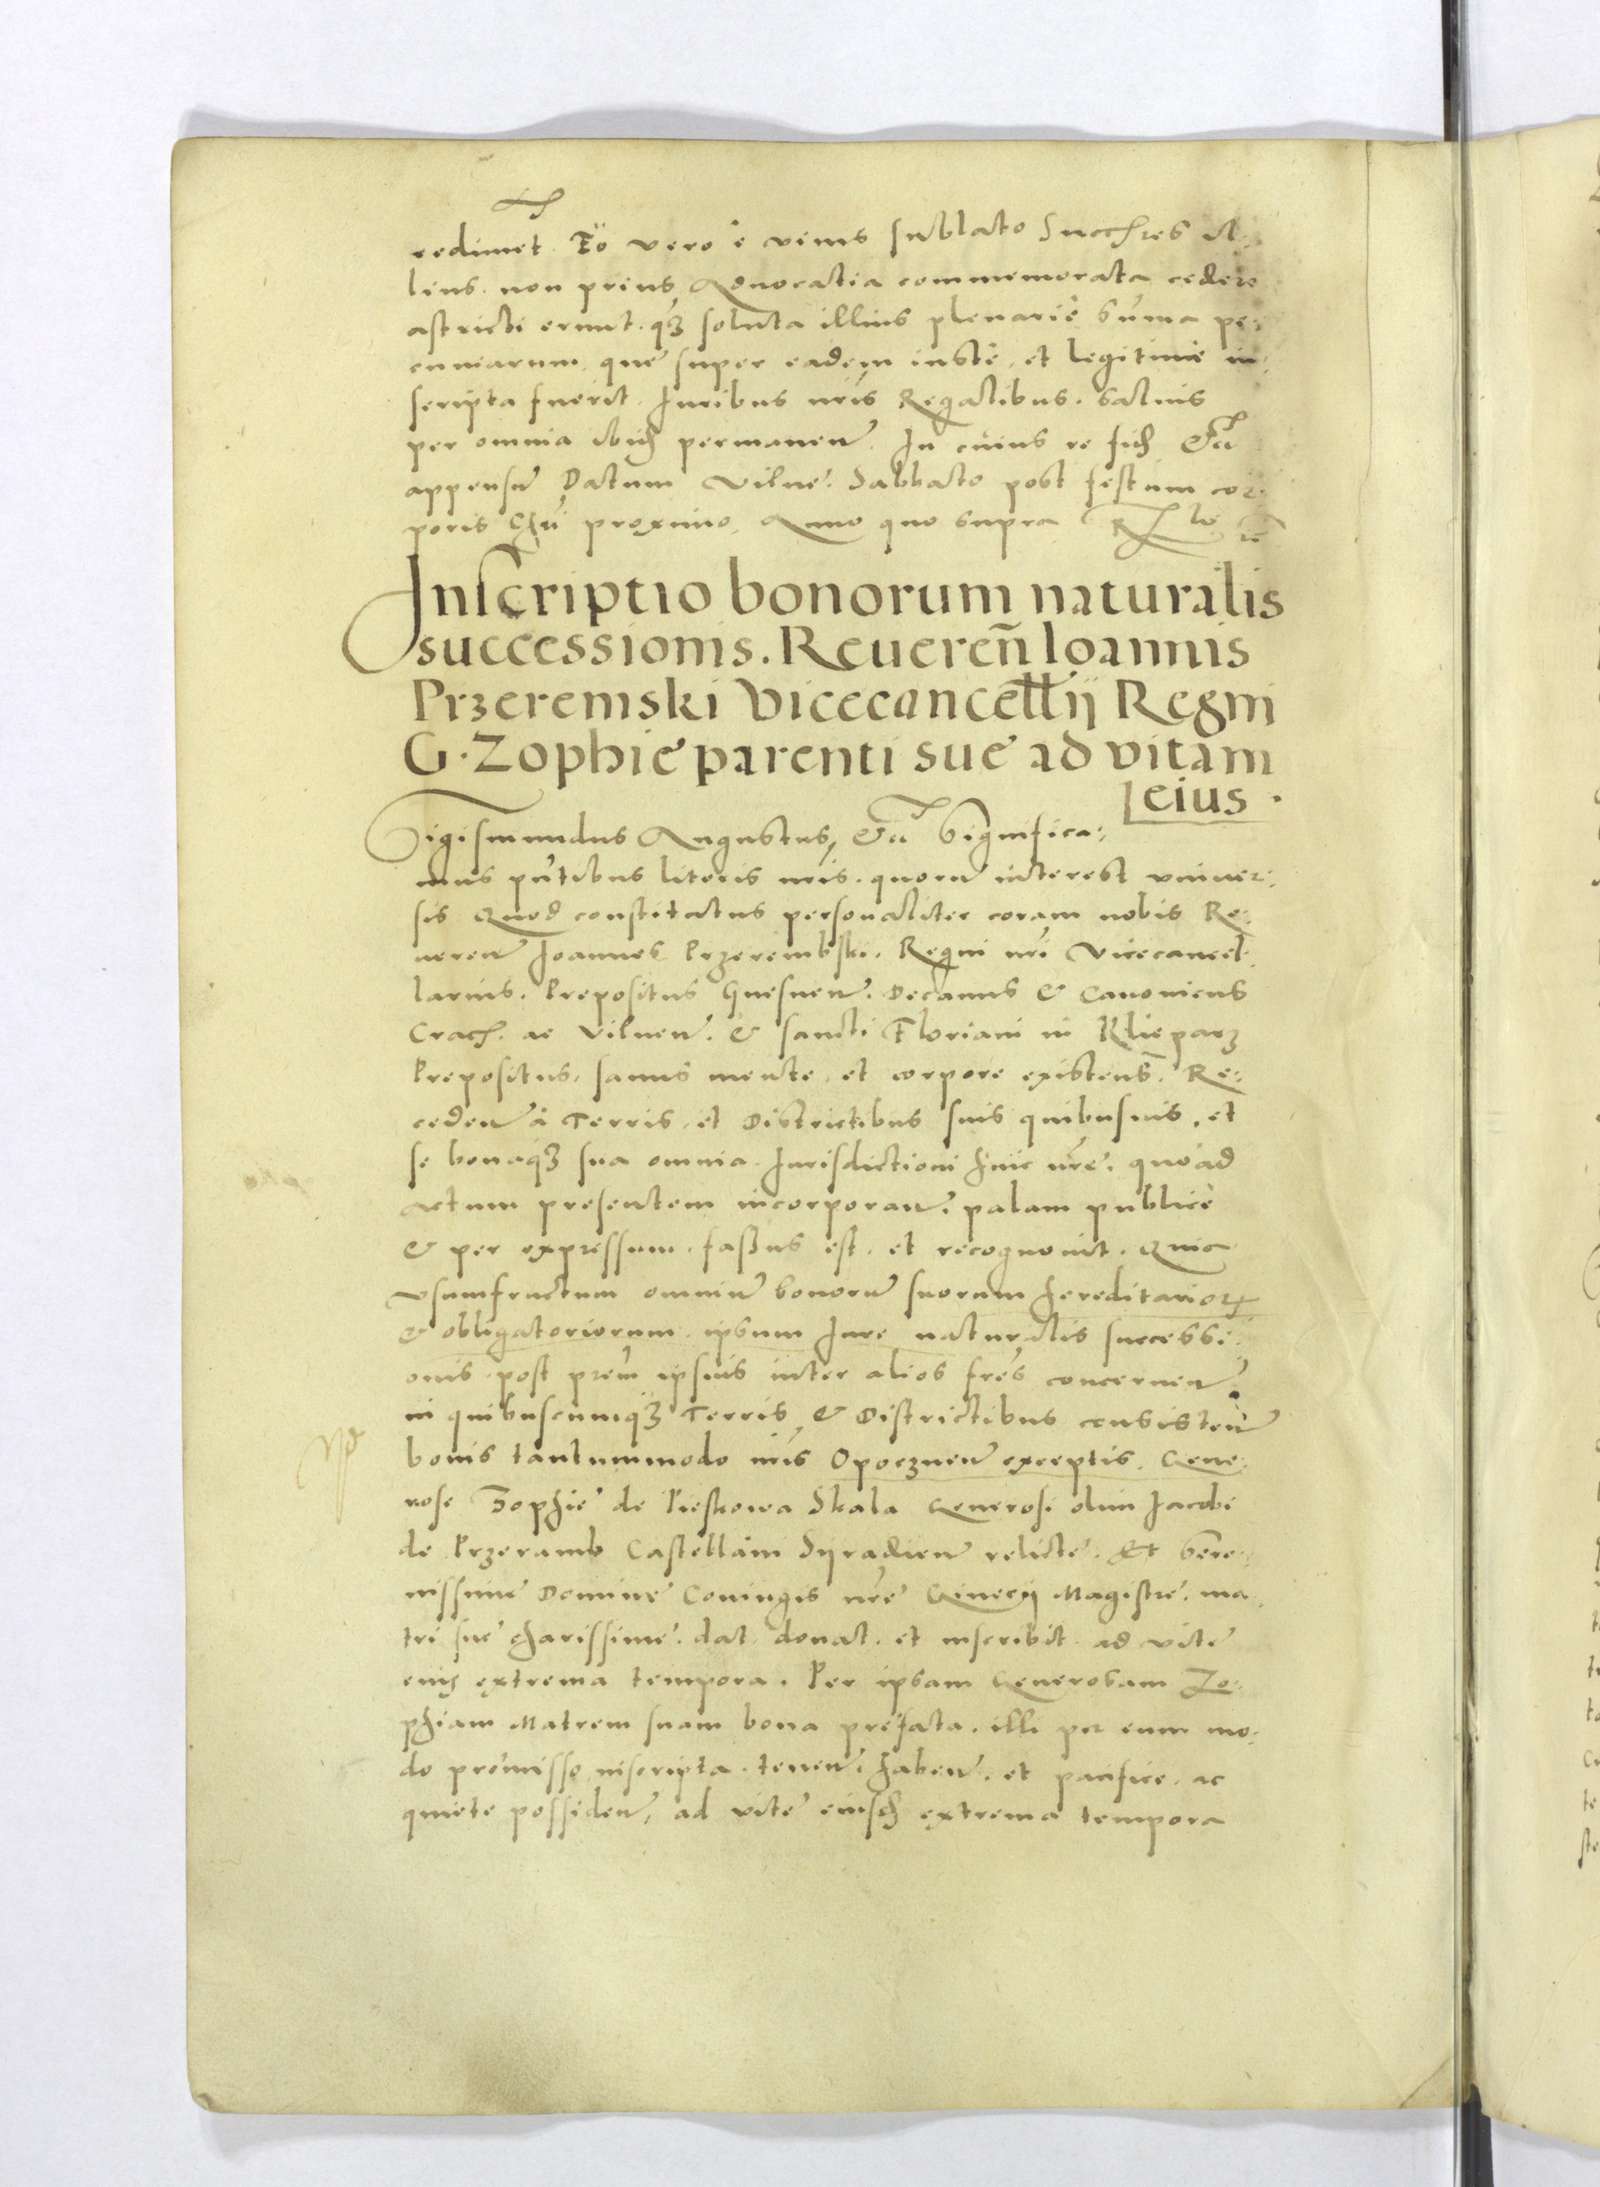 redimet. Eo vero e vivis sublato Succhres il-
lius. non prius Advocatia commemorata cedere
astricti erunt. q3 soluta illius plenarie summa pe-
cuniarum, que super eadem iuste, et legitime in-
scripta fuerit. Iuribus nris Regalibus. salvis
per omnia ibidem permanen. In cuius re fid &c
appensu Datum Vilne. Sabbato post festum cor-
poris Chri proximo. Anno quo supra
Inscriptio bonorum naturalis
successionis. Reueren Ioannis
Przeremski Vicecancellii Regni
G. Zophie parenti sue ad vitam
eius.
Sigismundus Augustus, &c Significa-
mus pntibus literis nris. quoru interest univer-
sis Quod constitutus personaliter coram nobis Re-
veren Joannes Przerembski. Regni nri Vicecancel-
larius. Prepositus Gnesnen. Decanus & Canonicus
Crach. ac Vilnen. & sancti Floriani in Klieparz
Prepositus, sanus mente, et corpore existens. Re-
ceden a Terris, et Districtibus suis quibusuis, et
se bonaq3 sua omnia Jurisdictioni huic nre. quo ad
actum presentem incorporan. palam publice
& per expressum. fassus est. et recognovit. Quia
usumfructum omniu bonoru suorum hereditarior
& obligatoriorum. ipsum Jure naturalis successi-
onis. post prem ipsius inter alios fres concernen.
in quibuscumq3 Terris & Districtibus consisten
bonis tantummodo nris Opocznen exceptis. Gene-
rose Zophie de Pieskowa Skala Generosi olim Jacobi
de Przeramb Castellani Syradien relicte. Et Sere-
nissime Domine Coniugis nre Ginecij Magistre. ma-
tri sue charissime. dat. donat. et inscribit. ad vite
eius extrema tempora. Per ipsam Generosam Zo-
phiam Matrem suam bona prefata. illi per eum mo-
do premisso inscripta. tenen. haben. et pacifice. ac
quiete possiden, ad vite eiusdem extrema tempora